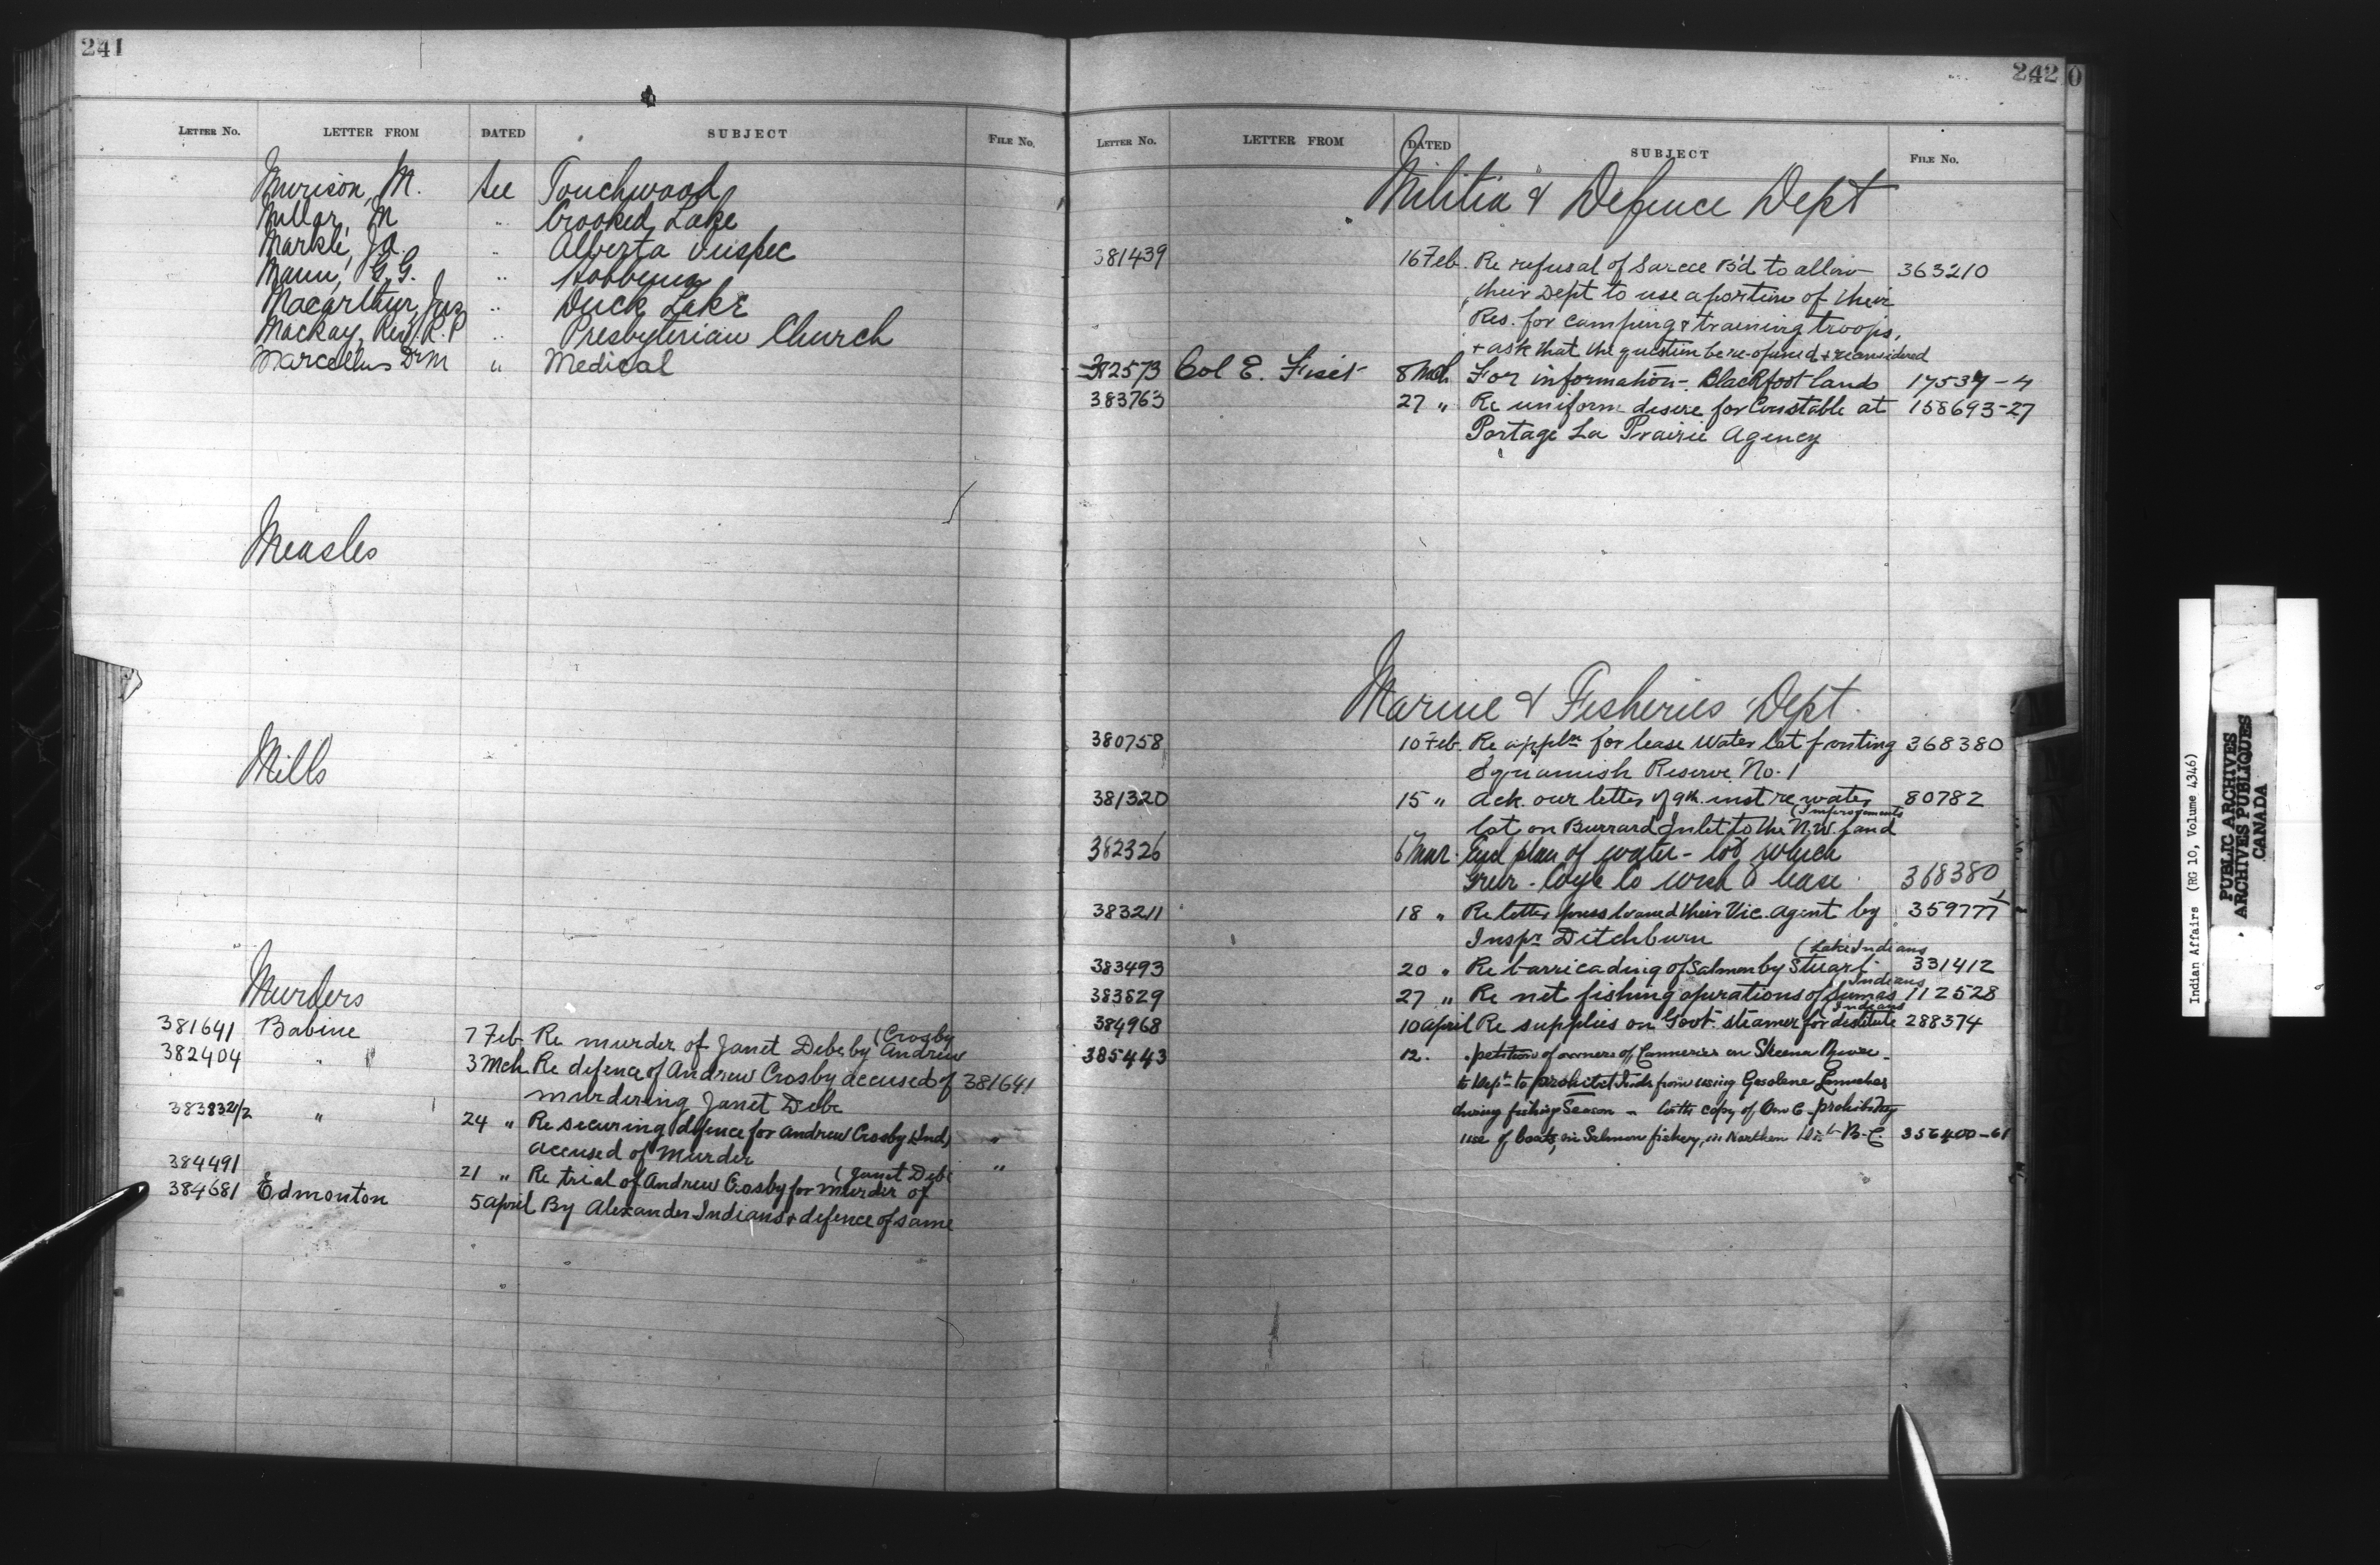 241
LETTER No. LETTER FROM DATED SUBJECT FILE No.
Murison, M. see Touchwood
Millar, M " Crooked Lake
Markle, J.A. " Alberta Inspec
Mann, G.G. " Hobbema
Macarthur, Jas " Duck Lake
Mackay, Rev. R.P " Presbyterian Church
Marcellus Dr M " Medical
Measles
Mills
Murders
381641 Babine 7 Feb Re murder of Janet Debe by Andrew (Crosby
382404 " 3 Mch Re defence of Andrew Crosby accused of 381641
murdering Janet Debe
383832 1/2 " 24 " Re securing defence for Andrew Crosby (Ind) "
accused of Murder
384491 21 " Re trial of Andrew Crosby for Murder of (Janet Debe "
384681 Edmonton 5 April By Alexander Indians & defence of same
242
LETTER No. LETTER FROM DATED SUBJECT FILE No.
Militia & Defence Dept
381439 16 Feb. Re refusal of Sarcee B'd to allow 363210
their Dept to use a portion of their
Res. for camping & training troops,
& ask that the question be re-opened & reconsidered
382573 Col E. Fiset 8 Mch For information - Blackfoot lands 17537-4
383763 27 " Re uniform desire for Constable at 158693-27
Portage La Prairie Agency
Marine & Fisheries Dept.
380758 10 Feb. Re appln for lease Water lot fronting 368380
Squamish Reserve No. 1
381320 15 " Ack. our letter of 9th inst re water 80782
lot on Burrard Inlet to the N.W. Land (Improvements
382326 6 Mar. Encl plan of water-lot which
Grur. Loge Co wish to lease 368380
383211 18 " Re letter press loaned their Vic. Agent by 359777 1
Inspr Ditchburn
383493 20 " Re barricading of Salmon by Stuart (Lake Indians 331412
383829 27 " Re net fishing operations of Sumas Indians 112528
384968 10 April Re supplies on Govt. steamer for destitute Indians 288374
385443 12. " petition of owners of Canneries on Skeena River
to Dept to prohibit Inds from using Gasolene Launches
during fishing Season - with copy of O in C prohibiting
use of boats in Salmon fishery, in Northern Dist B.C. 356400-61
Indian Affairs (RG 10, Volume 4346)
PUBLIC ARCHIVES
ARCHIVES PUBLIQUES
CANADA